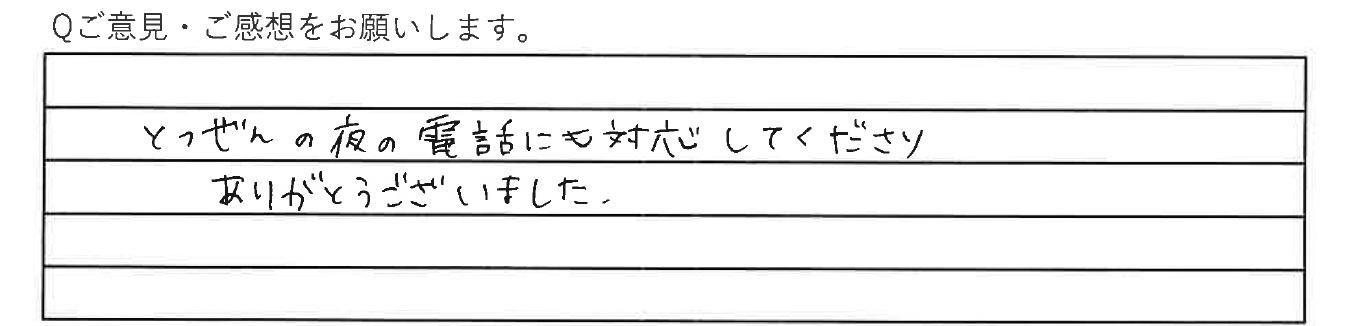 Qご意見・ご感想をお願いします。
とつぜんの夜の電話にも対応してくださり
ありがとうございました.